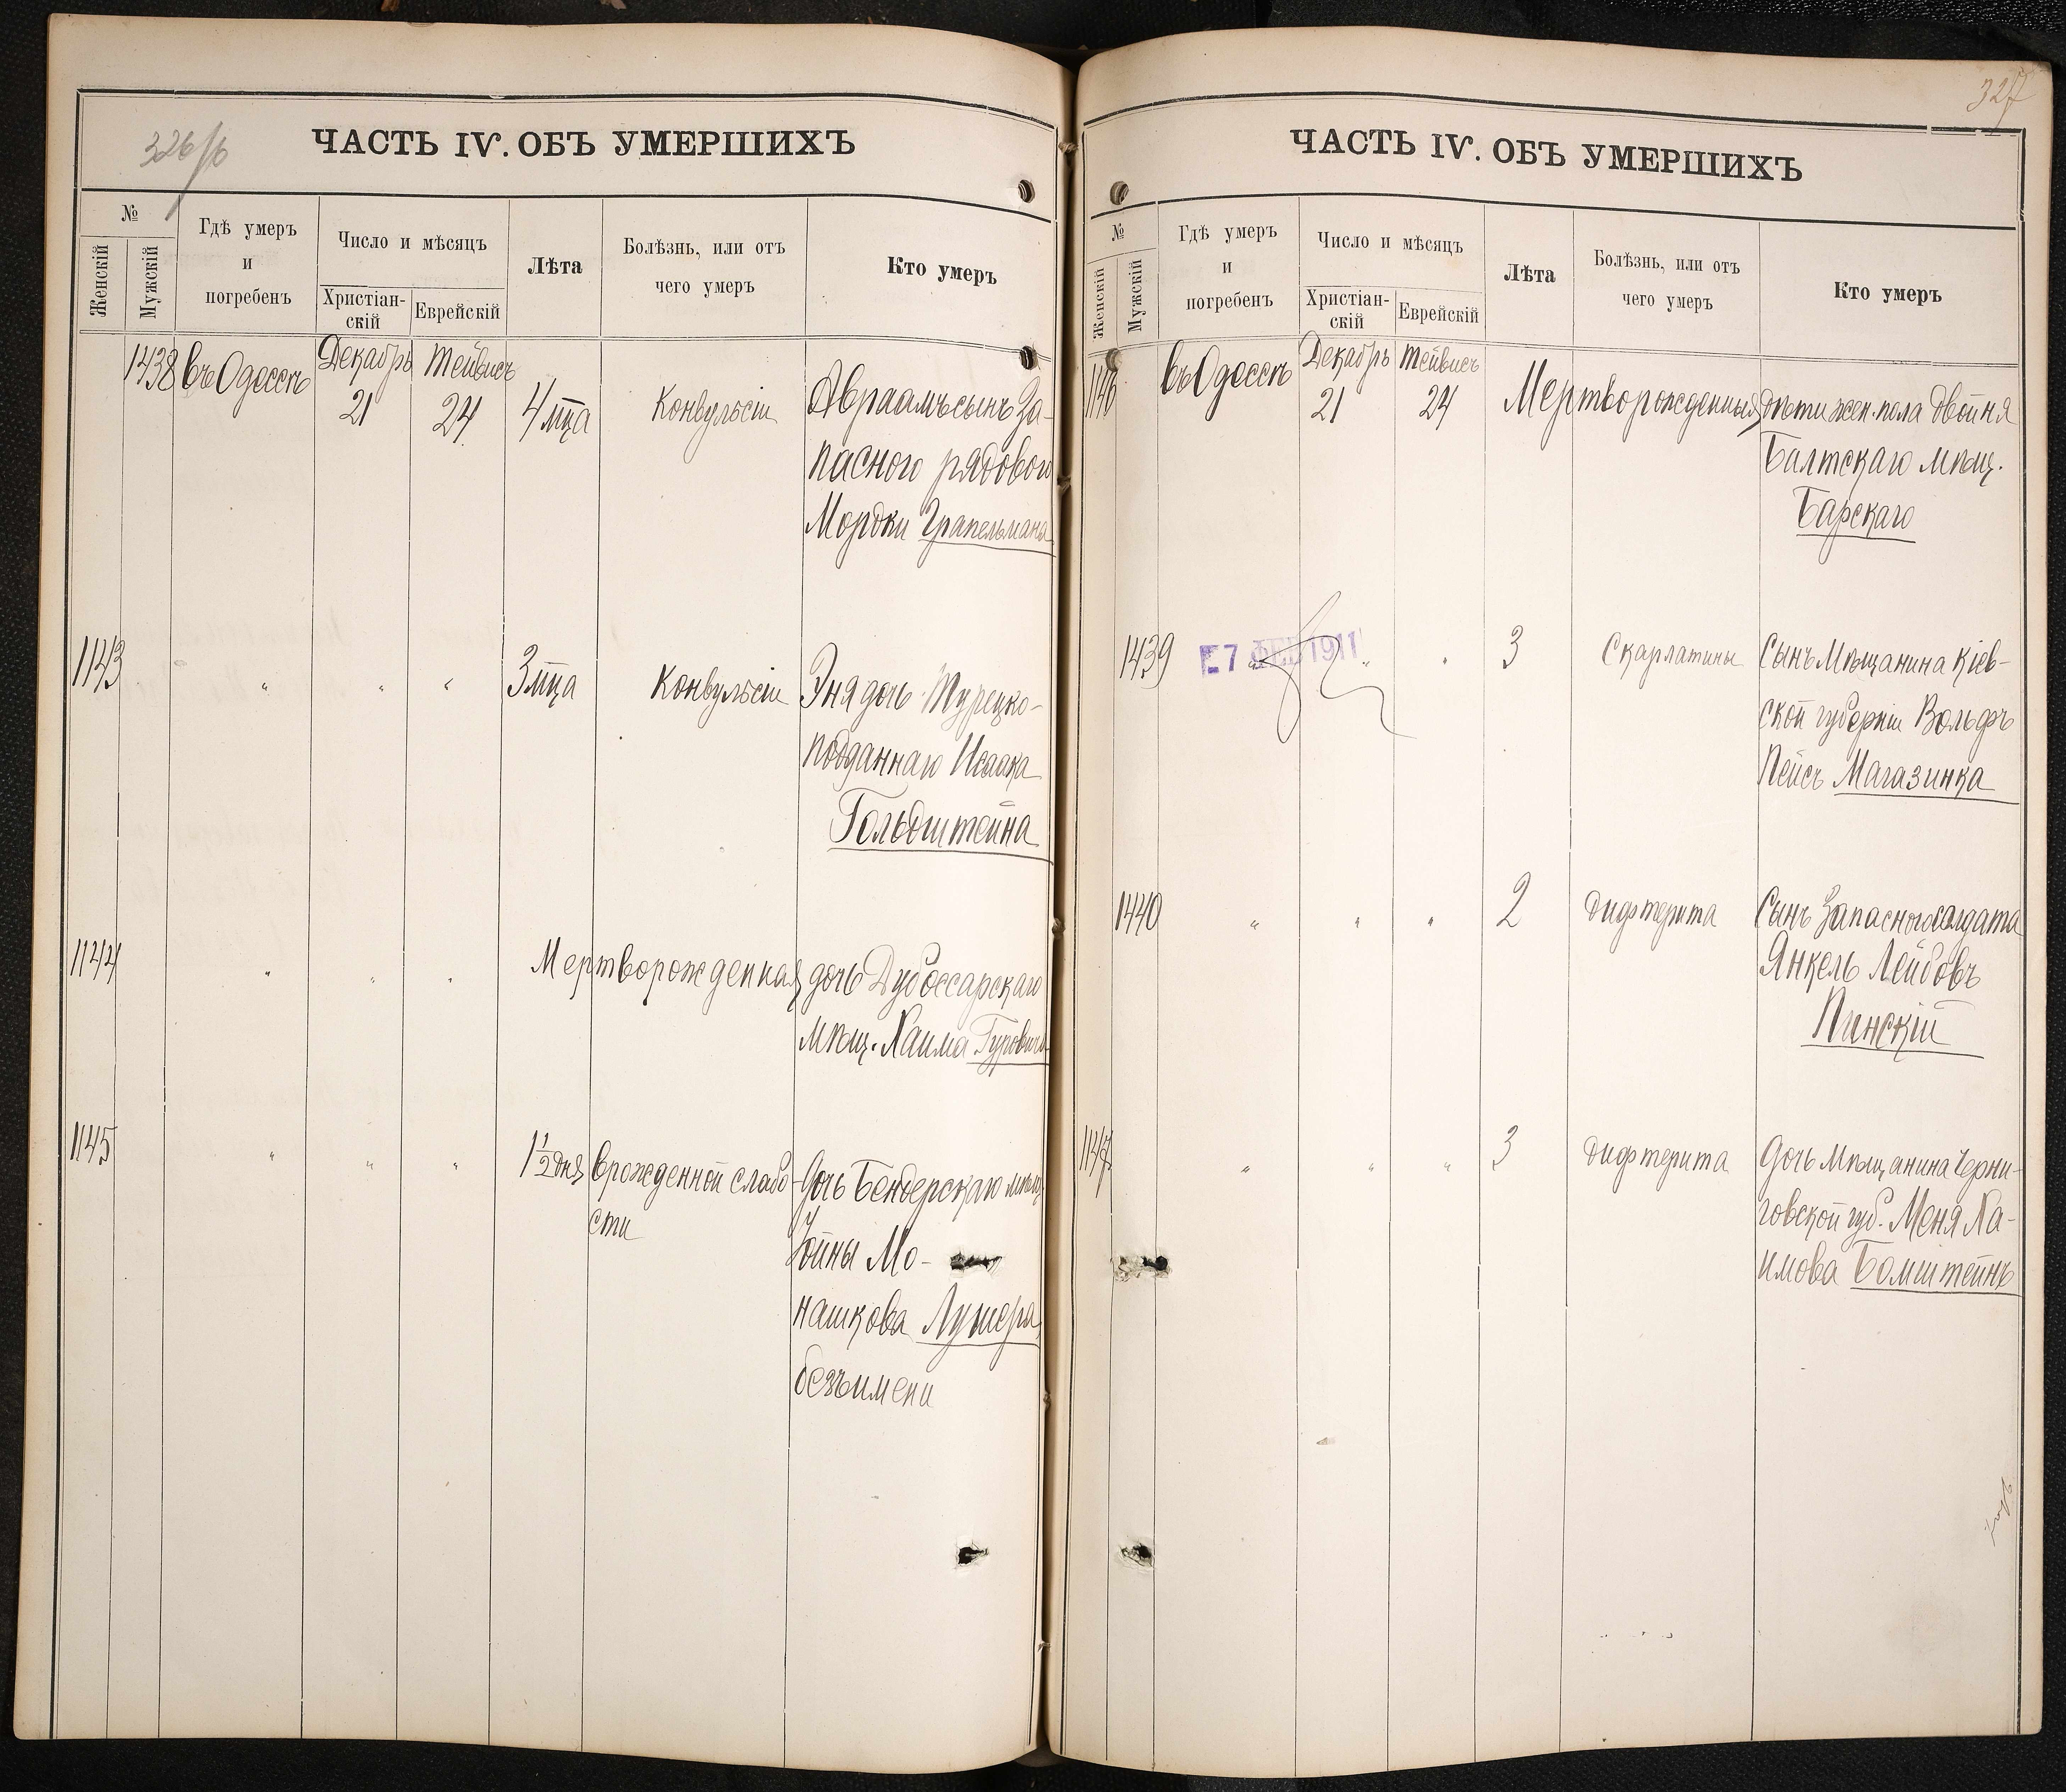 326/б
ЧАСТЬ IV. ОБЪ УМЕРШИХЪ
№
Женскій
Мужскій
Гдѣ умеръ
и
погребенъ
Число и мѣсяцъ
Христіан-
скій
Еврейскій
Лѣта
Болѣзнь, или отъ
чего умеръ
Кто умеръ
1438 въ Одессѣ Декабрь 21 Тейвисъ 24 4 мца Конвульсіи Авраамъ сынъ За-
паснаго рядового
Мордки Грапельмана
1143 " " " 3 мца Конвульсіи Эня дочь Турецко-
подданнаго Исаака
Гольдштейна
1144 " " " Мертворожденная дочь Дубоссарскаго
мѣщ. Хаима Гуровича
1145 " " " 1 1/2 дня врожденной слабо- Дочь Бендерскаго мѣщ.
сти
Іойны Мо-
нашкова Лушера
безъ имени
327
ЧАСТЬ IV. ОБЪ УМЕРШИХЪ
№
Женскій
Мужскій
Гдѣ умеръ
и
погребенъ
Число и мѣсяцъ
Христіан-
скій
Еврейскій
Лѣта
Болѣзнь, или отъ
чего умеръ
Кто умеръ
1146 въ Одессѣ Декабрь 21 Тейвисъ 24 Мертворожденныя дѣти жен. пола двойня
Балтскаго мѣщ.
Барскаго
1439 Е7 ФЕВ 1911 " " 3 Скарлатины Сынъ Мѣщанина Кіев-
ской губерніи Вольфъ
Пейсъ Магазинка
1440 " " " 2 дифтерита Сынъ Запасного солдата
Янкель Лейбовъ
Пинскій
1147 " " " 3 дифтерита Дочь мѣщанина Черни-
говской губ. Меня Ха-
имова Бомштейнъ